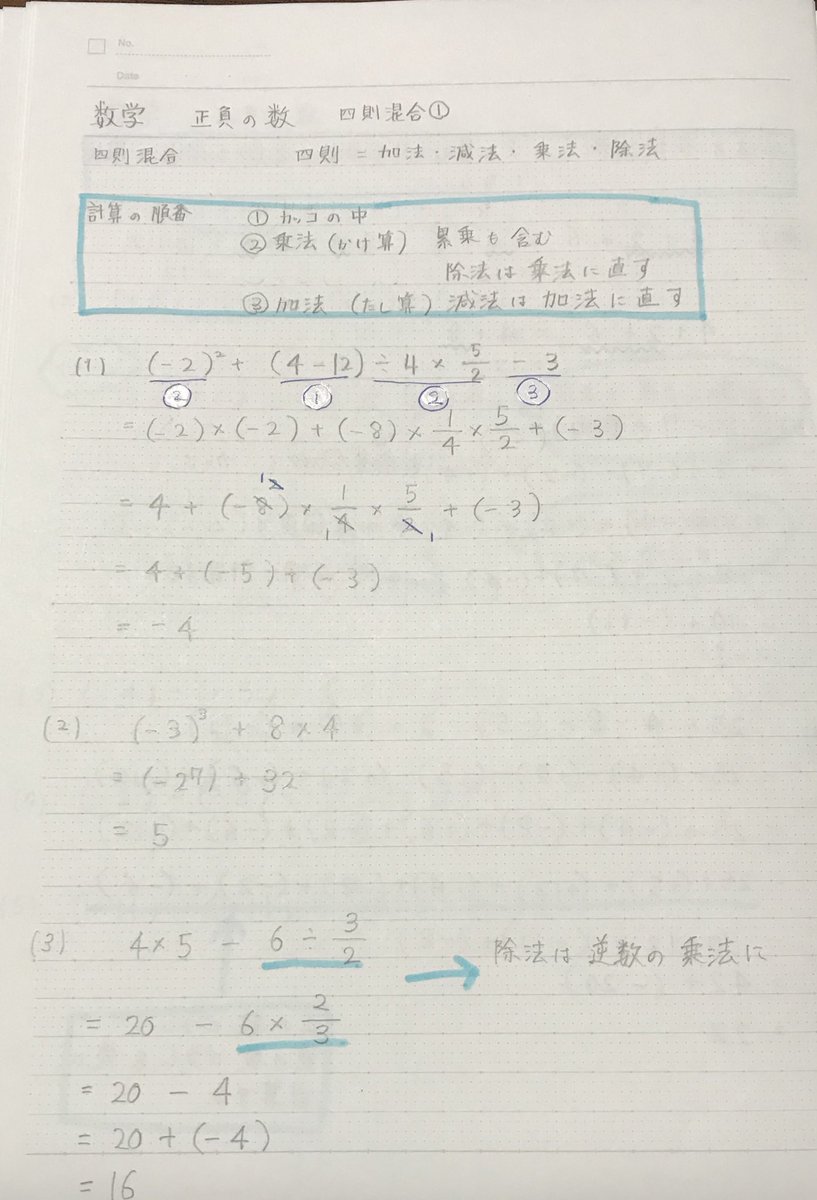 No.
Date
数学 正負の数 四則混合①
四則混合 四則 = 加法・減法・乗法・除法
計算の順番 ① カッコの中
② 乗法(かけ算) 累乗も含む
除法は乗法に直す
③ 加法 (たし算) 減法は加法に直す
(1) (-2)² + (4-12) ÷ 4 × 5/2 - 3
② ① ② ③
= (-2)×(-2) + (-8) × 1/4 × 5/2 + (-3)
= 4 + (-8) × 1/4 × 5/2 + (-3)
= 4 + (-5) + (-3)
= -4
(2) (-3)³ + 8×4
= (-27) + 32
= 5
(3) 4×5 - 6 ÷ 3/2 → 除法は逆数の乗法に
= 20 - 6 × 2/3
= 20 - 4
= 20 + (-4)
= 16